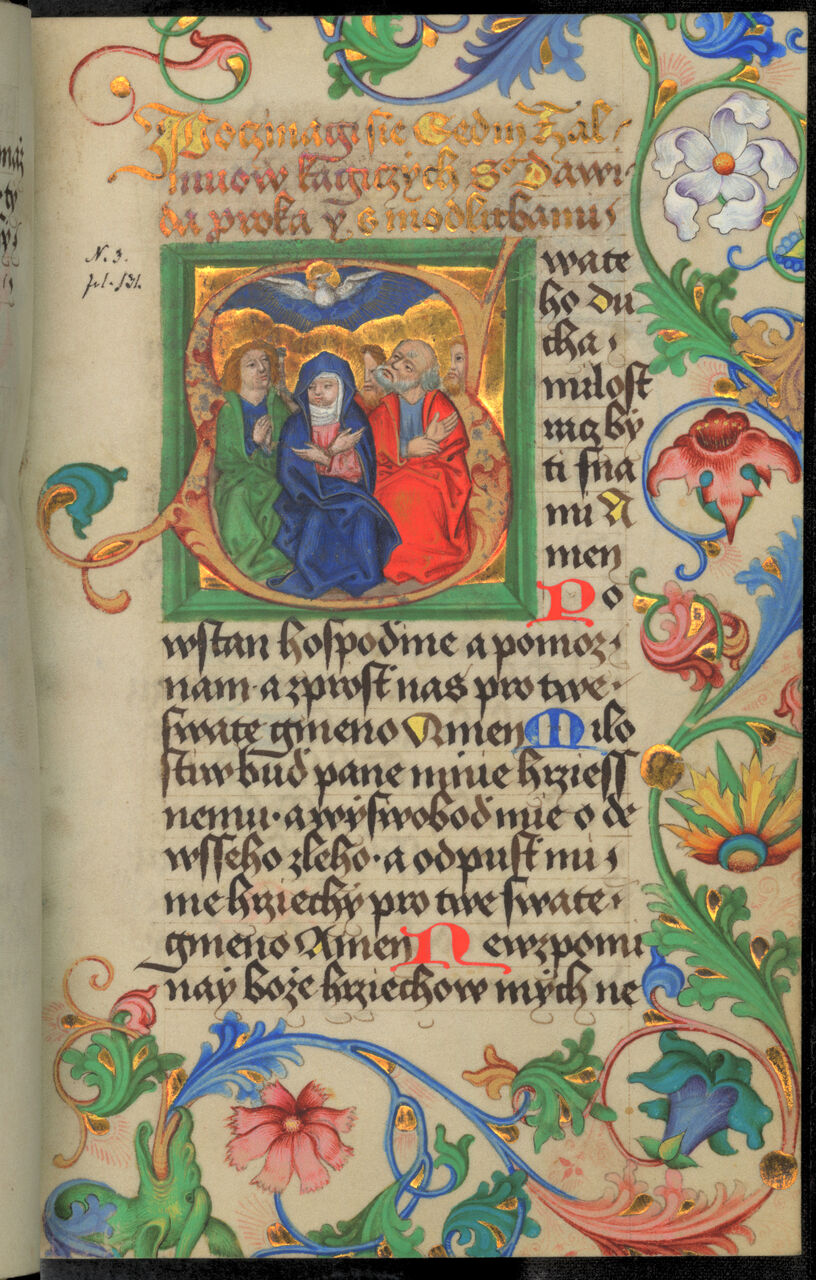 Poczinagi sie Sedm Zal
muow kagiczych S. Dawi
da proka y s modlitbami
N. 3.
fol. 131.
Swate
ho Du
cha
milost
racz by
ti s na
mi A
men
Po
wstan hospodine a pomoz
nam a zprost nas pro twe
swate gmeno Amen Milo
stiw bud pane mnie hrziess
nemu a wyswobod mie o de
wsseho zleho a odpust mi
me hrziechy pro twe swate
gmeno Amen Newzpomi
nay boze hrziechow mych ne